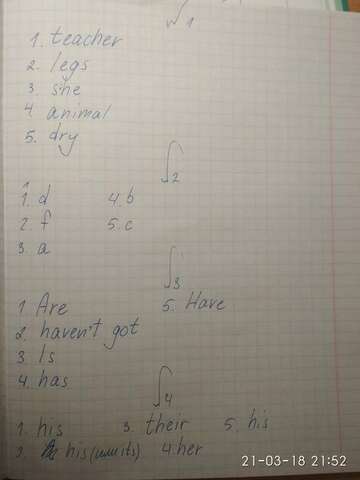 √1
1. teacher
2. legs
3. she
4. animal
5. dry
√2
1. d 4. b
2. f 5. c
3. a
√3
1. Are 5. Have
2. haven't got
3. Is
4. has
√4
1. his 3. their 5. his
2. his ( 4. her
21-03-18 21:52